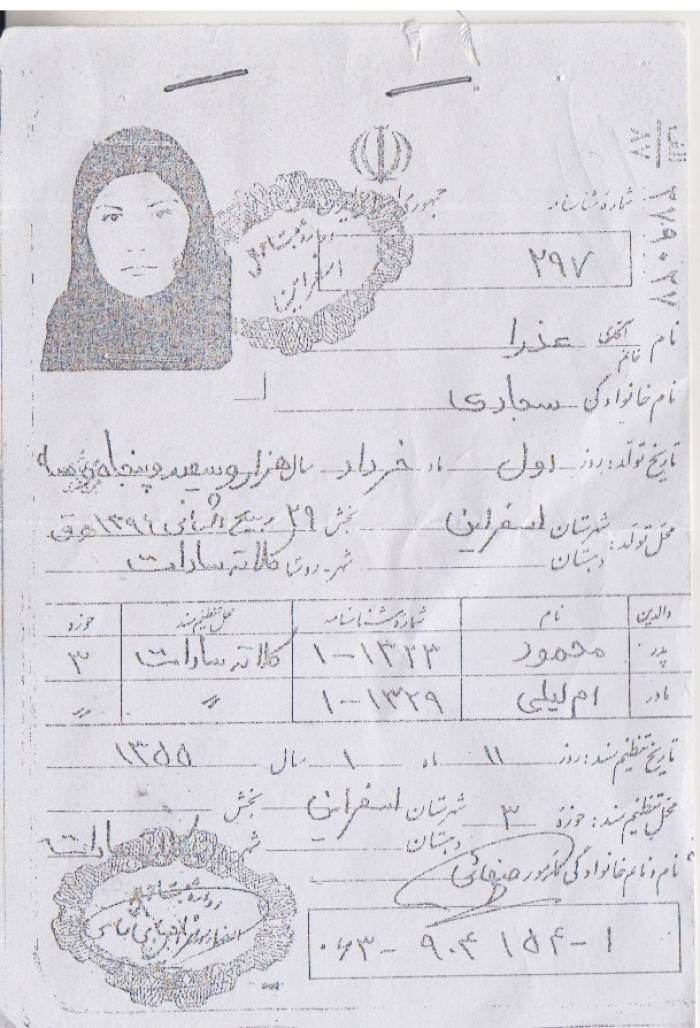 الف
۸۷
۳۷۹۰۲۷
جمهوری اسلامی ایران
شماره شناسنامه
اسفراین
۲۹۷
نام آقای خانم عذرا
نام خانوادگی سجادی
تاریخ تولد: روز اول ماه خرداد سال هزار و سیصد و پنجاه و سه
محل تولد: شهرستان اسفراین بخش ۲۹ ربیع الثانی ۱۳۹۴ ه ق
دهستان شهر-روستا کلاته سادات
والدین نام شماره شناسنامه محل تنظیم سند حوزه
پدر محمود ۱-۱۳۲۳ کلاته سادات ۳
مادر ام لیلی ۱-۱۳۲۹ " "
تاریخ تنظیم سند: روز ۱۱ ماه ۱ سال ۱۳۵۵
محل تنظیم سند: حوزه ۳ شهرستان اسفراین بخش
دهستان شهر سادات
نام و نام خانوادگی مامور
۰۶۳-۹۰۴۱۵۴-۱